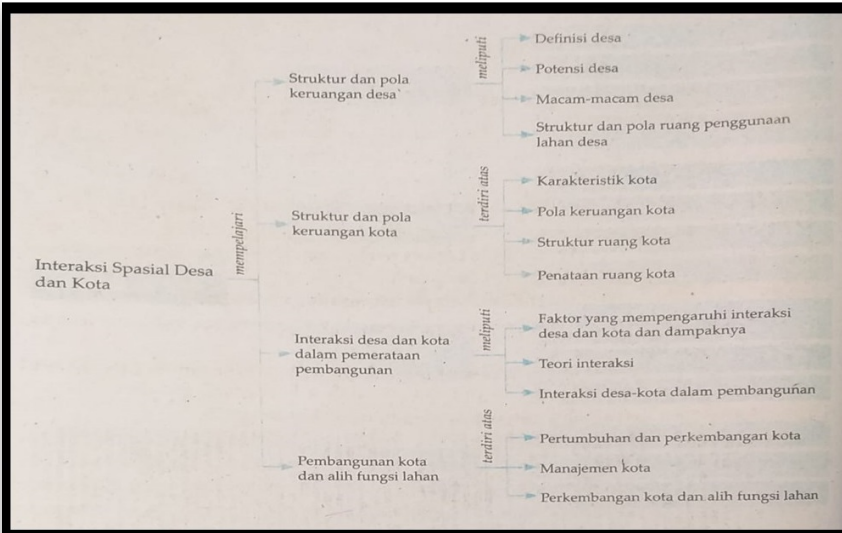 Interaksi Spasial Desa
dan Kota
mempelajari
Struktur dan pola
keruangan desa
meliputi
Definisi desa
Potensi desa
Macam-macam desa
Struktur dan pola ruang penggunaan
lahan desa
Struktur dan pola
keruangan kota
terdiri atas
Karakteristik kota
Pola keruangan kota
Struktur ruang kota
Penataan ruang kota
Interaksi desa dan kota
dalam pemerataan
pembangunan
meliputi
Faktor yang mempengaruhi interaksi
desa dan kota dan dampaknya
Teori interaksi
Interaksi desa-kota dalam pembangunan
Pembangunan kota
dan alih fungsi lahan
terdiri atas
Pertumbuhan dan perkembangan kota
Manajemen kota
Perkembangan kota dan alih fungsi lahan